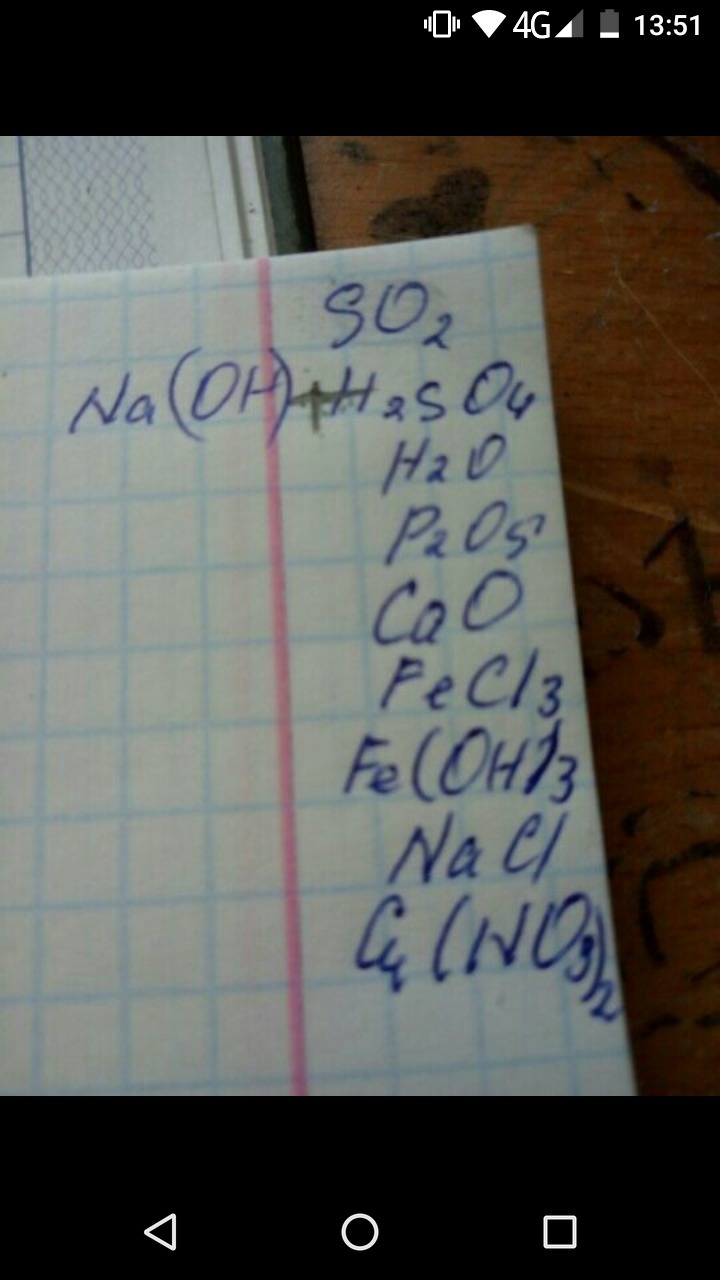 4G 13:51
SO₂
Na(OH)+H₂SO₄
H₂O
P₂O₅
CaO
FeCl₃
Fe(OH)₃
NaCl
(NO₃)₂